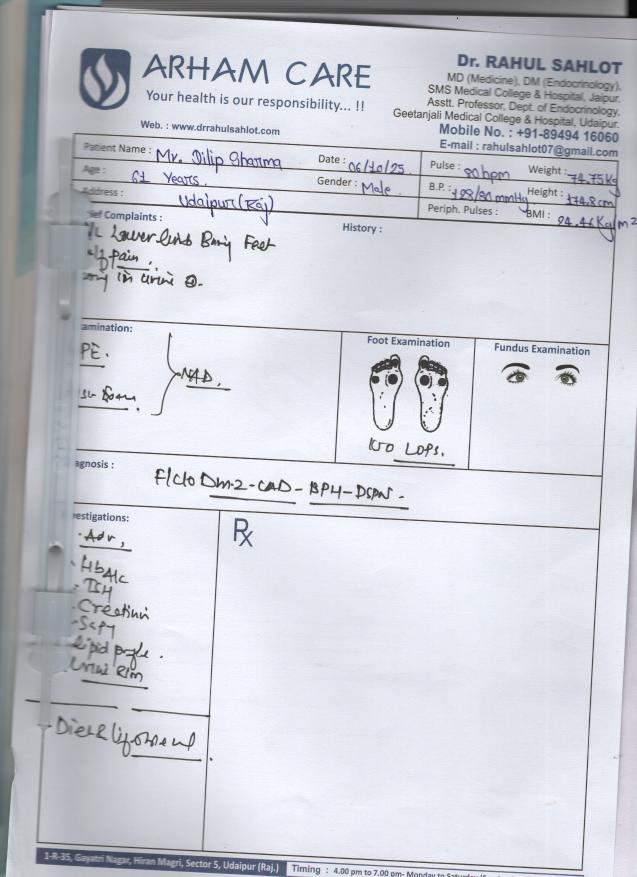 ARHAM CARE
Your health is our responsibility... !!
Web. : www.drrahulsahlot.com
Dr. RAHUL SAHLOT
MD (Medicine), DM (Endocrinology),
SMS Medical College & Hospital, Jaipur.
Asstt. Professor, Dept. of Endocrinology,
Geetanjali Medical College & Hospital, Udaipur.
Mobile No. : +91-89494 16060
E-mail : rahulsahlot07@gmail.com
Patient Name : Mr. Dilip Sharma Date : 06/10/25 Pulse : 80 bpm Weight : 74.75Kg
Age : 61 Years. Gender : Male B.P. : 128/80 mmHg Height : 174.8cm
Address : Udaipur (Raj) Periph. Pulses : BMI : 24.46 Kg/m2
ief Complaints : History :
Lower limb Feet
pain.
in urine
amination: Foot Examination Fundus Examination
PE.
NAD.
LOPS.
agnosis :
F/C/O Dm-2-CAD-BPH-DSPN-
estigations: Rx
- Adv,
- HbA1c
- TSH
- Creatinin
- SGPT
Lipid profile.
Urine R/m
- Diet &
1-R-35, Gayatri Nagar, Hiran Magri, Sector 5, Udaipur (Raj.) Timing : 4.00 pm to 7.00 pm- Monday to